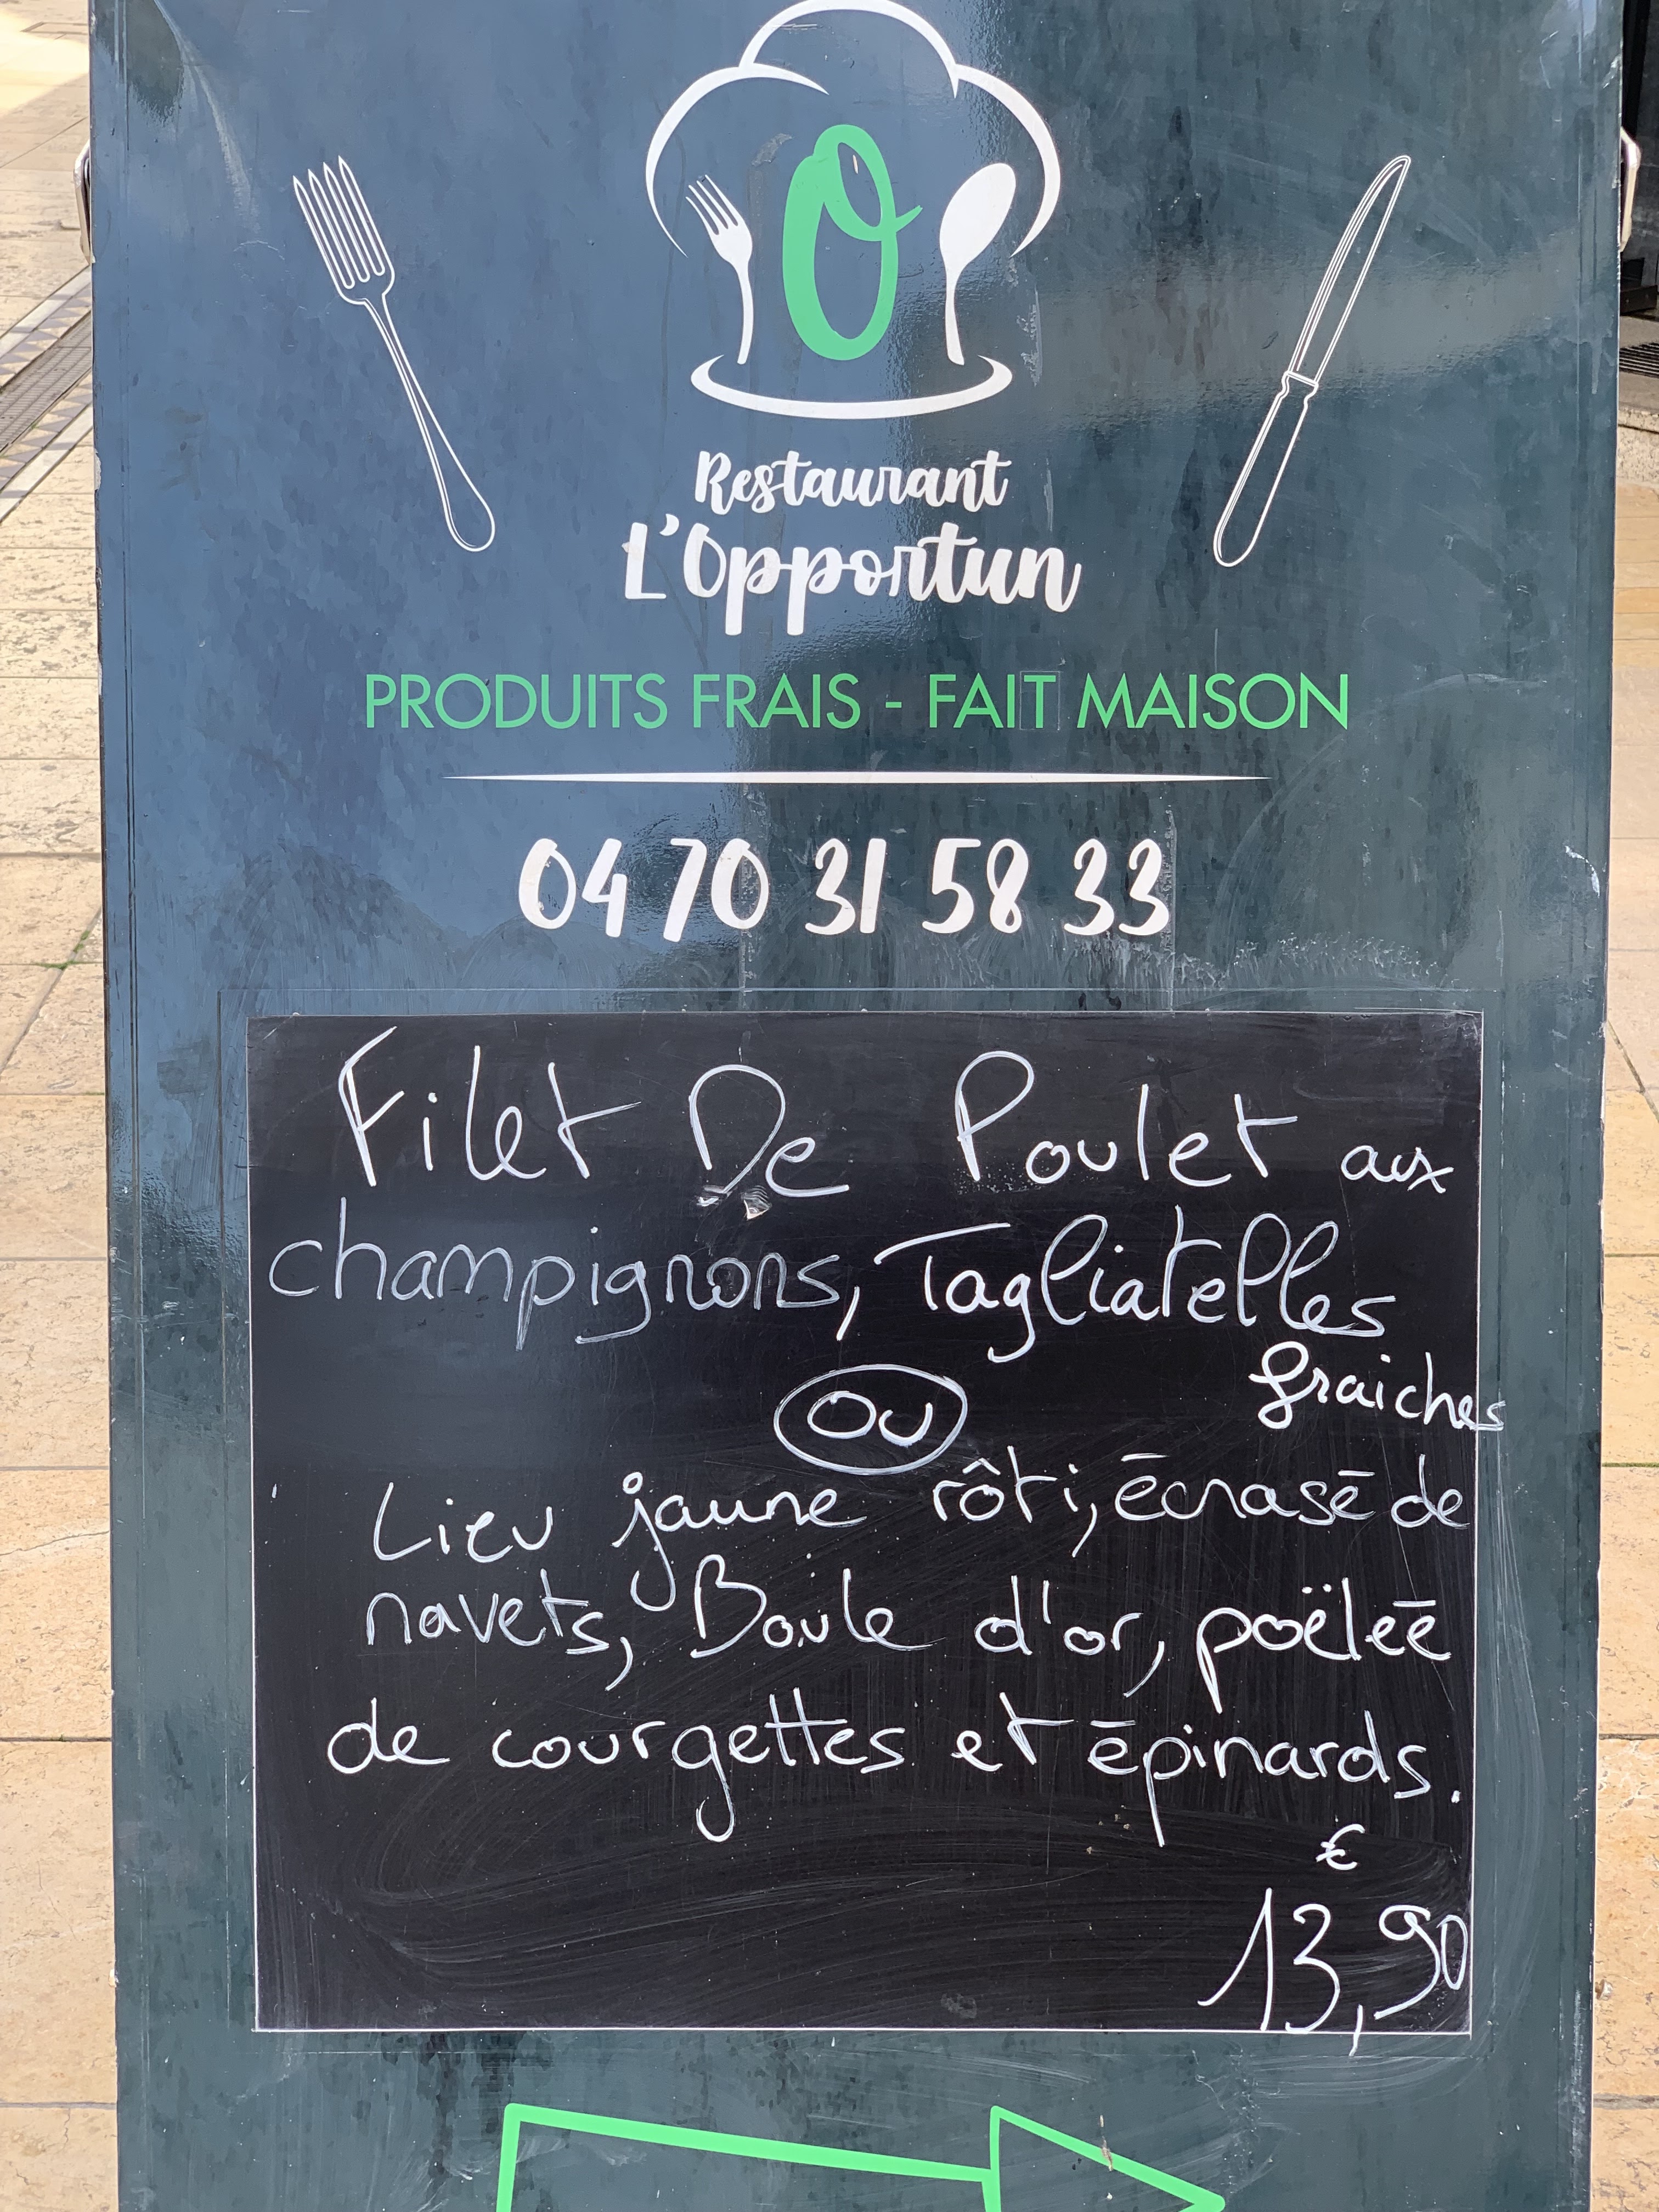 O
Restaurant
L'Opportun
PRODUITS FRAIS - FAIT MAISON
04 70 31 58 33
Filet De Poulet aux
champignons, Tagliatelles
fraiches
ou
Lieu jaune rôti, écrasé de
navets, Boule d'or, poëleé
de courgettes et épinards.
€
13,90